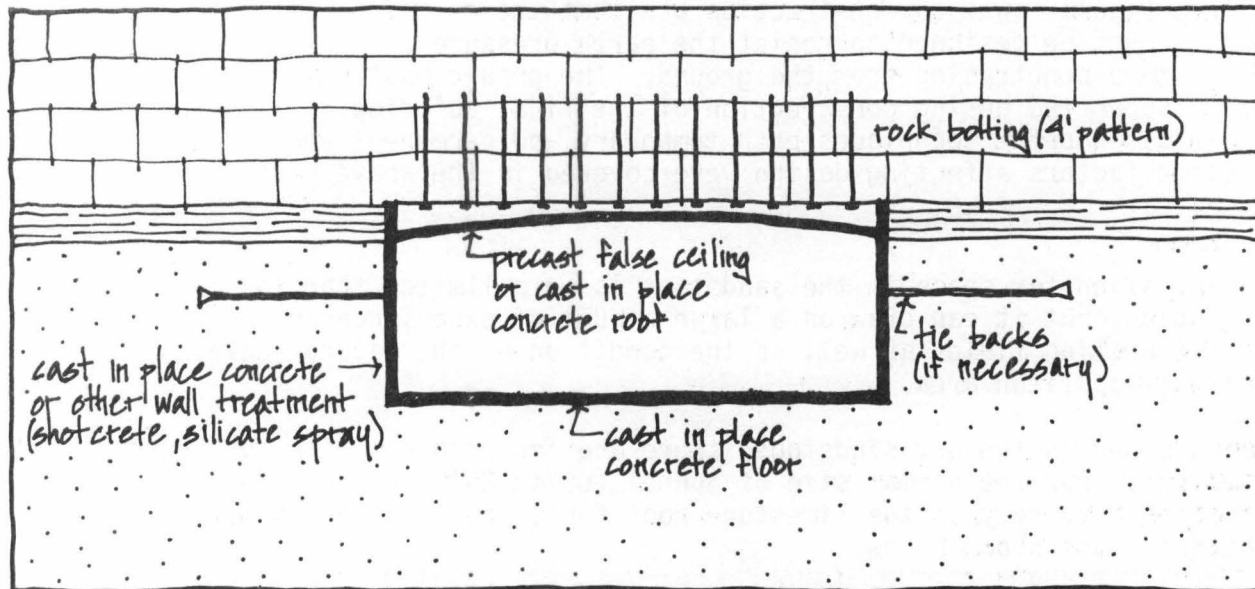 rock bolting (4' pattern)
precast false ceiling
or cast in place
concrete roof
tie backs
(if necessary)
cast in place concrete
or other wall treatment
(shotcrete, silicate spray)
cast in place
concrete floor